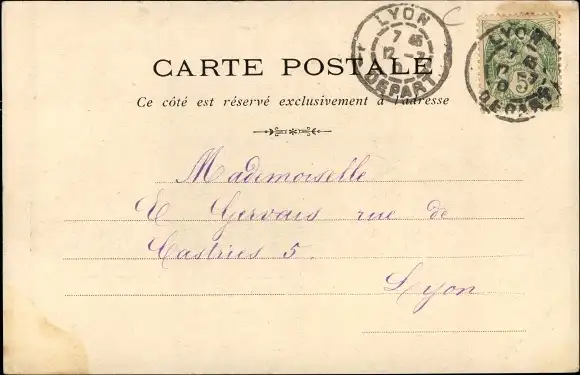 LYON
7 45
12 - 7
DEPART
LYON
DEPART
CARTE POSTALE
Ce côté est réservé exclusivement à l'adresse
Mademoiselle
E Gervais rue de
Castries 5.
Lyon